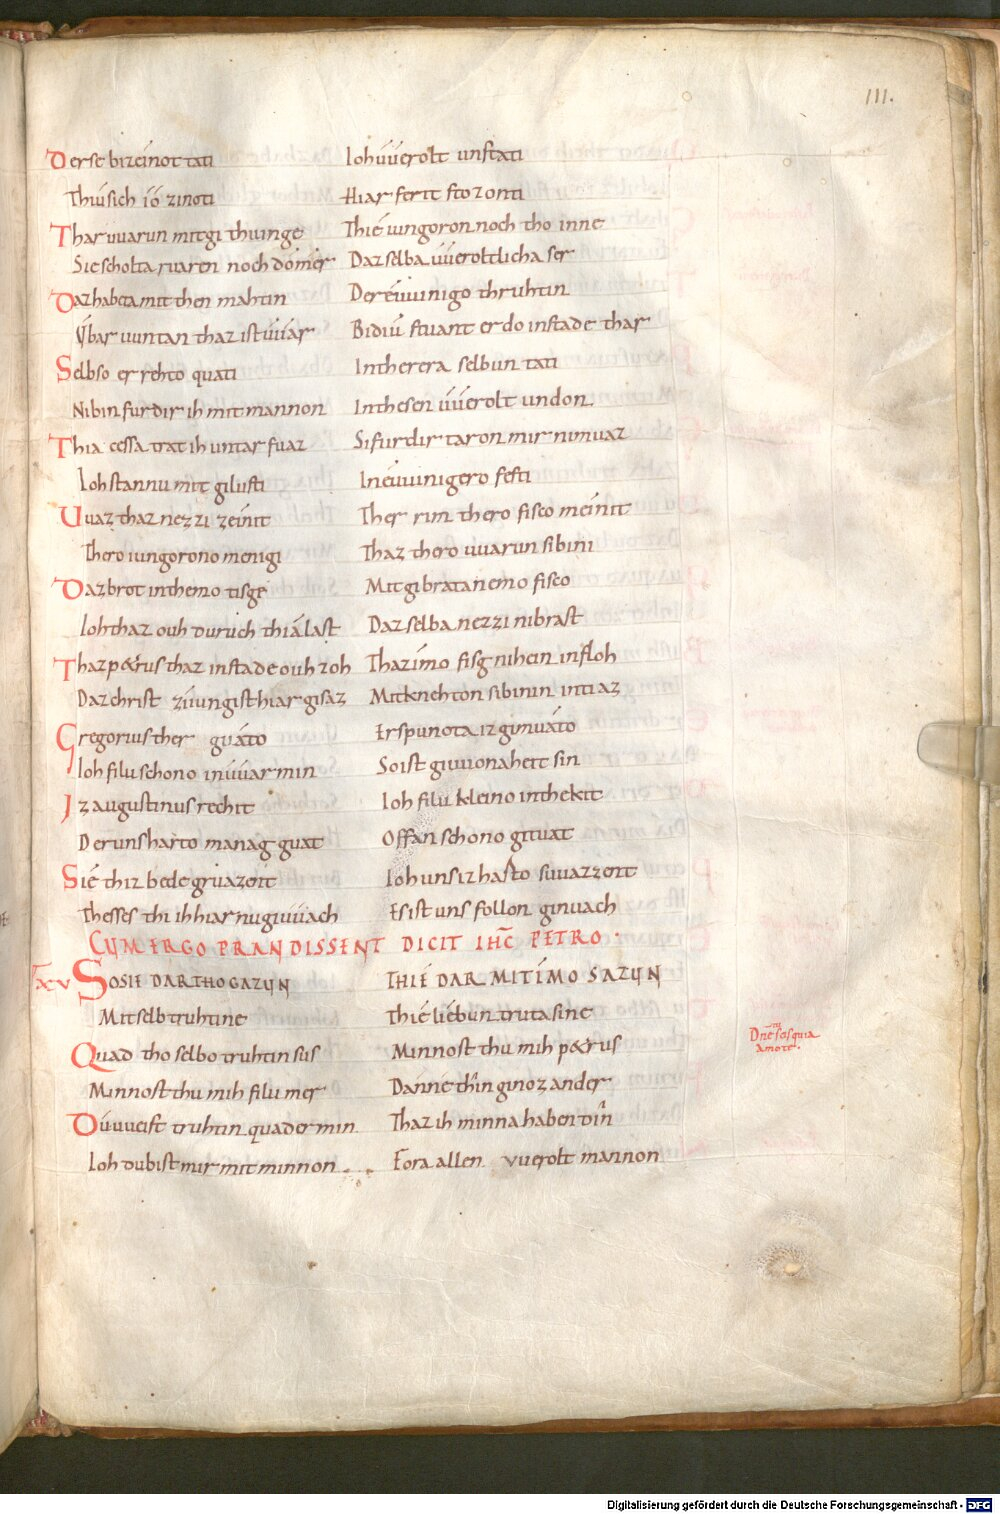 111.
Derse bizeinot tati Ioh uúerolt unstati
Thiu sich io zinoti Hiar ferit stozonti
Thar uuarun mit githuinge Thie iungoron noch tho inne
Sie scholtaruaren noch domer Daz selba uúeroltlicha ser
Daz habeta mit then mahtin Der euuinigo thruhtin
Vbar uuntan thaz ist uúar Bidiu stuant er do in stade thar
Selbso er rehto quati In therera selbun tati
Nibin furdir ih mit mannon In thesen uúerolt undon
Thia cessa trat ih untar fuaz Si furdir taron mir nimuaz
Ioh stannu mit gilusti In euuinigero festi
Uuaz thaz nezzi zeinit Ther run thero fisco meinit
Thero iungorono menigi Thaz thero uuarun sibini
Daz brot in themo tisge Mit gibratanemo fisco
Ioh thaz ouh duruch thia last Daz selba nezzi nibrast
Thaz petrus thaz in stade ouh zoh Thaz imo fisg nihein infloh
Daz christ zi iungist hiar gisaz Mit knehton sibinin inti az
Gregorius ther guáto Er spunota iz ginuáto
Ioh filu schono in uúar min So ist giuuonaheit sin
Iz augustinus rechit Ioh filu kleino inthekit
Der uns harto manag guat Offan schono gituat
Sie thir bede gruazent Ioh uns iz harto suuazzent
Thesses thi ih hiar nu giuúach Es ist uns follon ginuach
CUM ERGO PRANDISSENT DICIT IHC PETRO·
XV SOSIE DAR THO GAZUN THIE DAR MIT IMO SAZUN
Mit selb truhtine Thie liebun truta sine
Quad tho selbo truhtin sus Minnost thu mih petrus
Minnost thu mih filu mer Danne thin ginoz ander
Du uueist truhtin quad er min Thaz ih minna haben din
Ioh du bist mir mit minnon Fora allen vuerolt mannon
Dne tu scis quia
amo te·
Digitalisierung gefördert durch die Deutsche Forschungsgemeinschaft - DFG